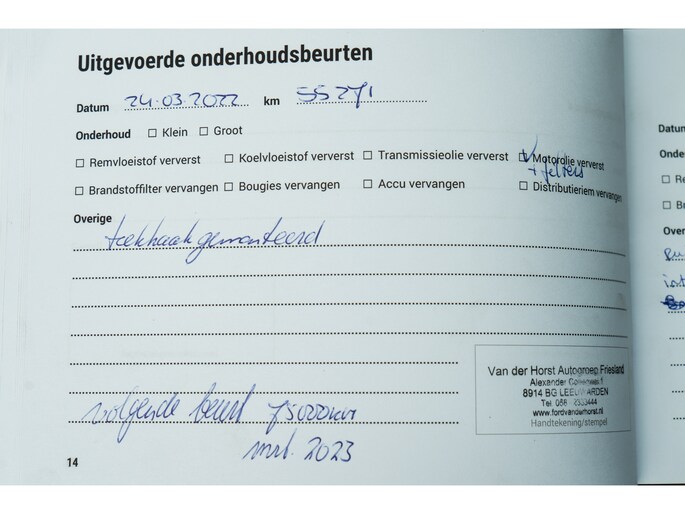 Uitgevoerde onderhoudsbeurten
Datum 24-03-2022 km 55271
Onderhoud ☐ Klein ☐ Groot
☐ Remvloeistof ververst ☐ Koelvloeistof ververst ☐ Transmissieolie ververst ☑ Motorolie ververst
+ filters
☐ Brandstoffilter vervangen ☐ Bougies vervangen ☐ Accu vervangen ☐ Distributieriem vervangen
Overige
trekhaak gemonteerd
Van der Horst Autogroep Friesland
Alexander
8914 BG LEEUWARDEN
Tel 058
www.fordvanderhorst.nl
Handtekening/stempel
volgende beurt 75000km
mrt. 2023
14
Datum
Onde
☐ Re
☐ Br
Over